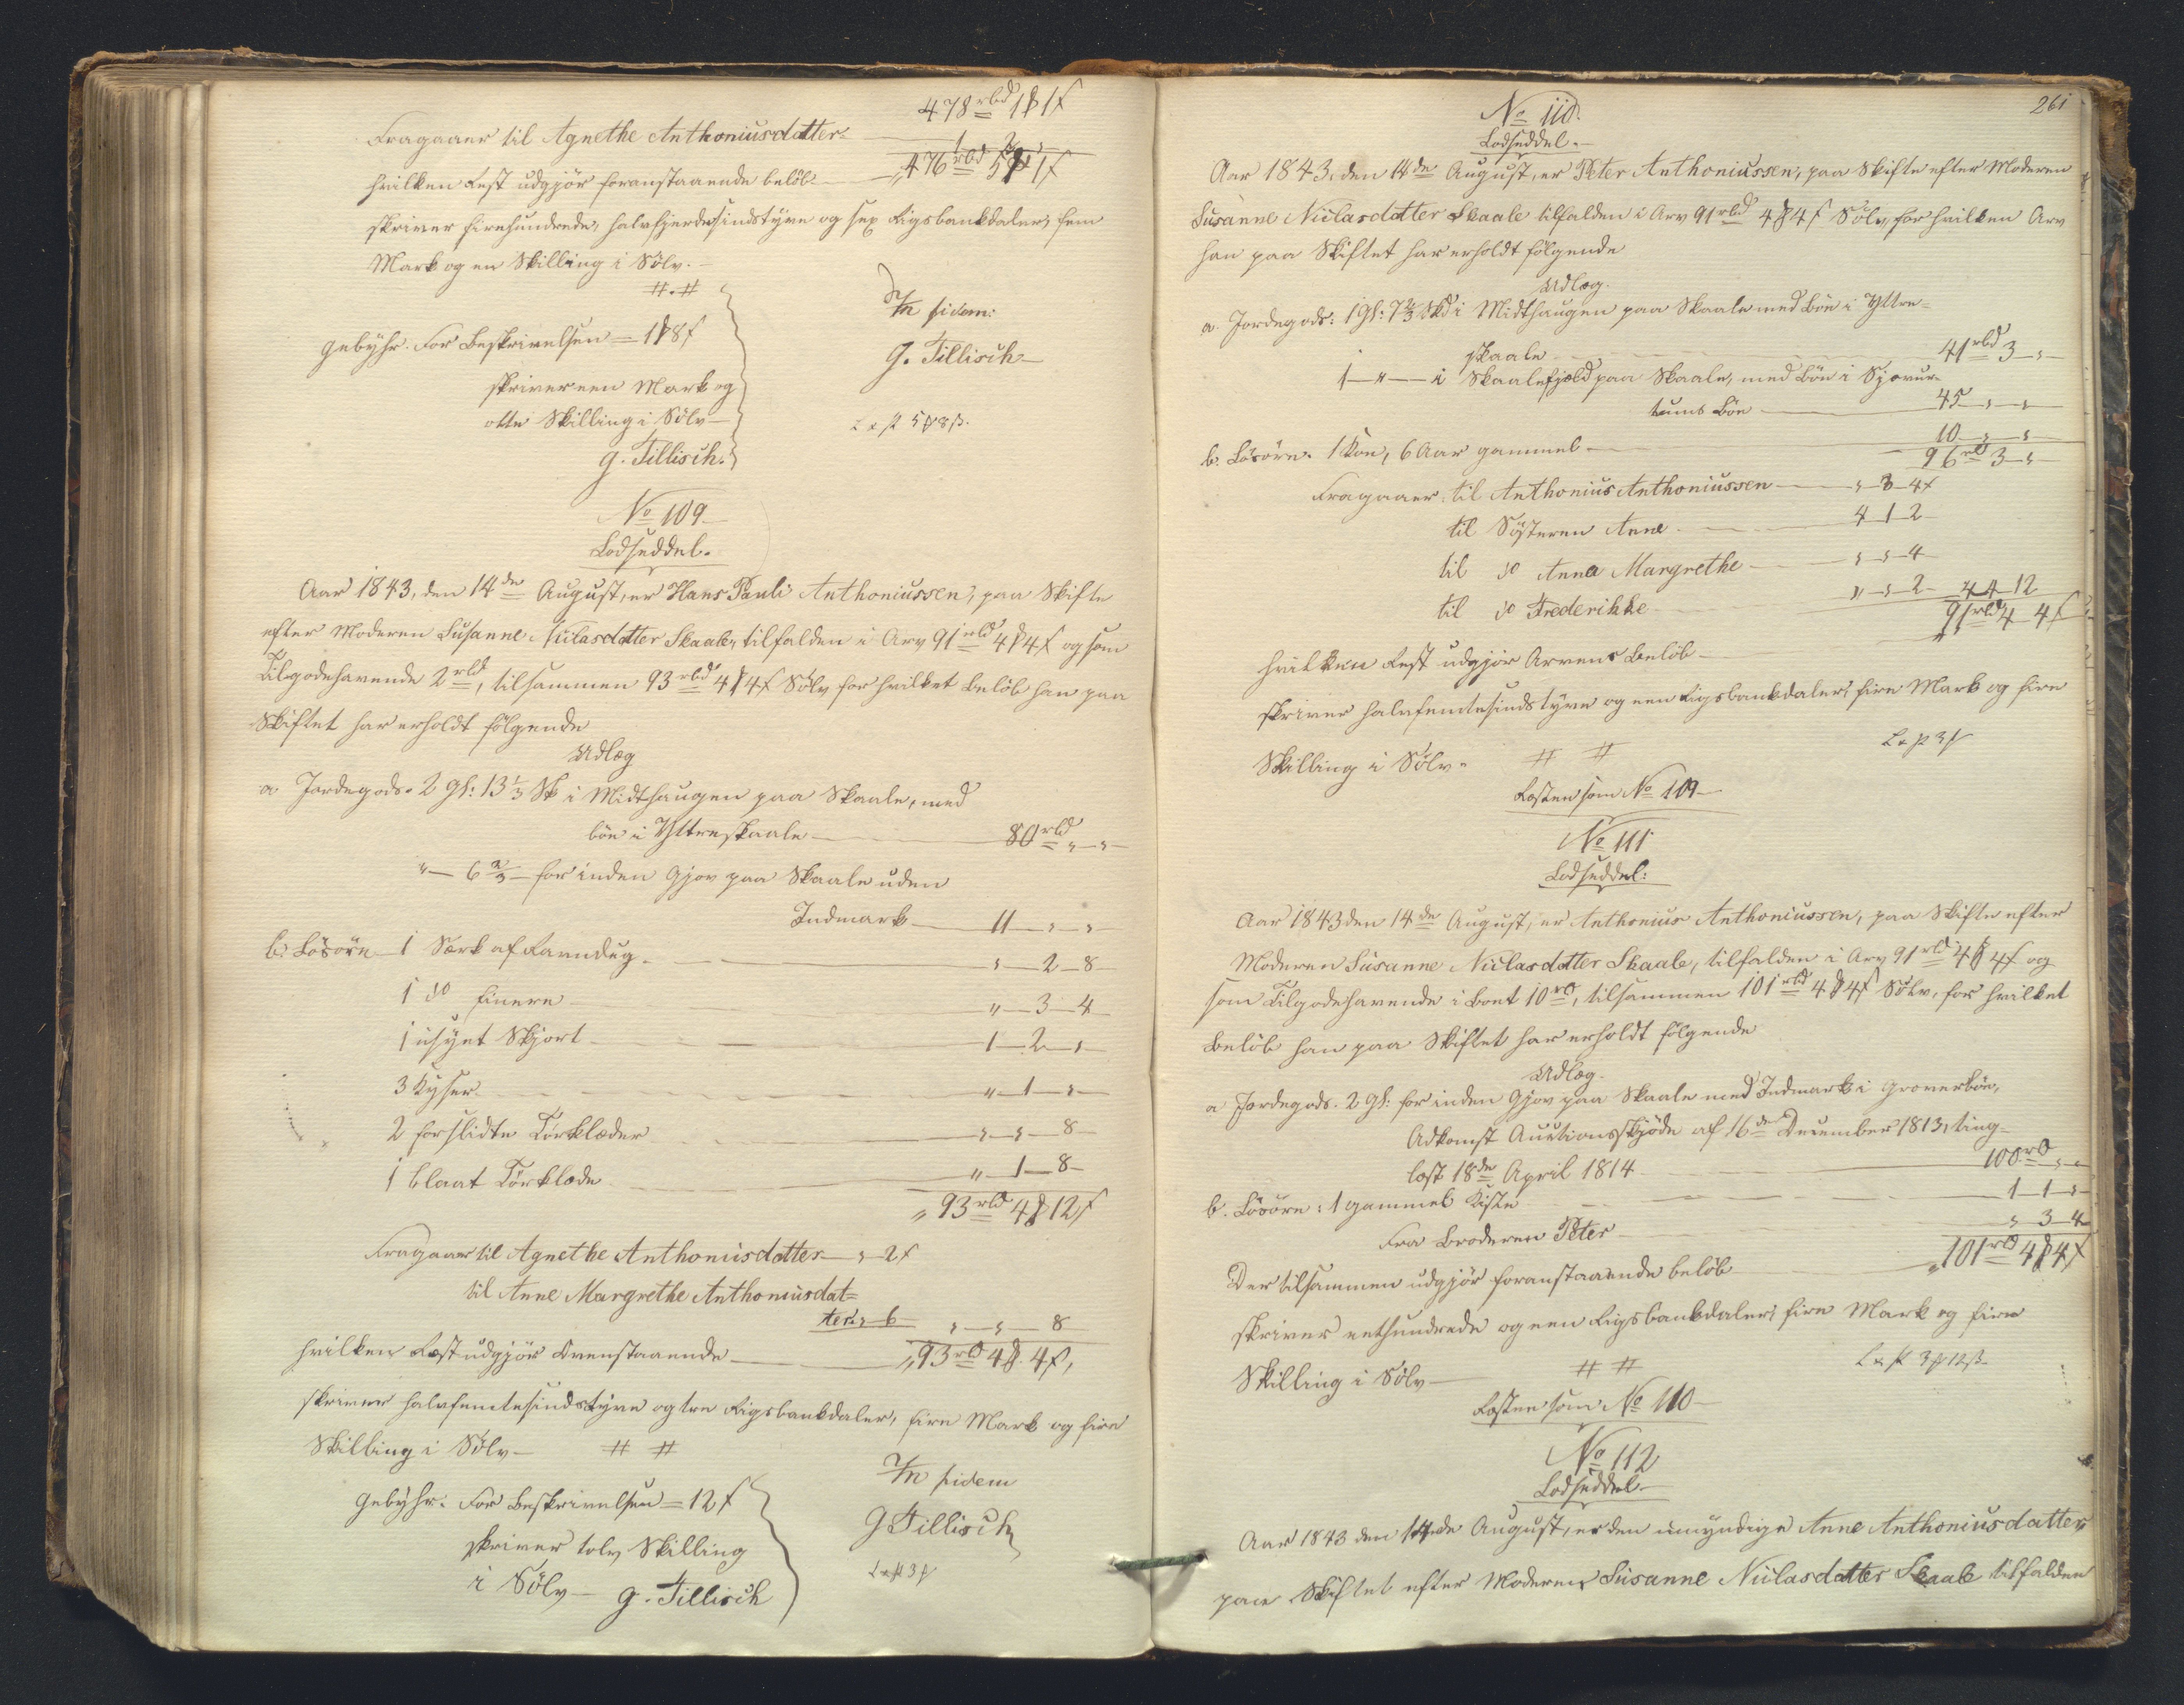 478 rbd 1 ₰ 1 ß
Fragaaer til Agnethe Anthoniusdatter — 1 2 "
hvilken Rest udgjör foranstaaende belöb — „476 rbd 5 ₰ 1 ß
skriver firehundrede, halvfjerdesindstyve og sex Rigsbankdaler, fem
Mark og en Skilling i Sölv. —
# . #
In fidem:
Gebyhr. For Beskrivelsen = 1 ₰ 8 ß
G. Tillisch
skriver een Mark og
otte Skilling i Sölv —
G. Tillisch.
No 109
Lodseddel.
Aar 1843, den 14de August, er Hans Pauli Anthoniussen, paa Skifte
efter Moderen Susanne Niclasdatter Skaale, tilfalden i Arv 91 rbd 4 ₰ 4 ß og som
Tilgodehavende 2 rbd, tilsammen 93 rbd 4 ₰ 4 ß Sölv for hvilket Belöb han paa
Skiftet har erholdt fölgende
Udlæg
a. Jordegods. 2 Gl: 13 1/3 Sk i Midthaugen paa Skaale, med
böe i Yttreskaale — 80 rbd " "
" — 6 2/3 — for inden Gjov paa Skaale uden
Indmark — 11 " "
b. Lösöre — 1 Særk af Ravndug. — " 2 8
1 do finere — " 3 4
1 usyet Skjort — 1 2 "
3 Kyser — " 1 "
2 forslidte Törklæder — " " 8
1 blaat Törklæde — " 1 8
„93 rbd 4 ₰ 12 ß
Fragaaer til Agnethe Anthoniusdatter — " 2 ß
til Anne Margrethe Anthoniusdat=
ter " 6 — " " 8
hvilken Rest udgjör Ovenstaaende — „93 rbd 4 ₰ 4 ß,
skriver halvfemtesindstyve og tre Rigsbankdaler, fire Mark og fire
Skilling i Sölv — # #
In fidem
Gebyhr. For Beskrivelsen = 12 ß
G Tillisch
skriver tolv Skilling
i Sölv — G. Tillisch
261
No 110.
Lodseddel. —
Aar 1843, den 14de August, er Peter Anthoniussen, paa Skifte efter Moderen
Susanne Niclasdatter Skaale tilfalden i Arv 91 rbd 4 ₰ 4 ß Sölv, for hvilken Arv
han paa Skiftet har erholdt fölgende
Udlæg.
a. Jordegods: 1 Gl: 7 2/3 Sk i Midthaugen paa Skaale med Böe i Yttre=
skaale — 41 rbd 3 "
1 — " — i Skaalefjæld paa Skaale, med Böe i
tums Böe — 45 " "
b. Lösöre. 1 Koe, 6 Aar gammel — 10 " "
96 rbd 3 "
Fragaaer til Anthonius Anthoniussen — " 3 4 ß
til Söstren Anne — 4 1 2
til do Anna Margrethe — " " 4
til do Frederikke — " " 2 — 4 4 12
hvilken Rest udgjör Arvens Belöb — 91 rbd 4 4 ß
skriver halvfemtesindstyve og een Rigsbankdaler, fire Mark og fire
Skilling i Sölv. # #
Resten som No 109
No 111
Lodseddel:
Aar 1843 den 14de August, er Anthonius Anthoniussen, paa Skifte efter
Moderen Susanne Niclasdatter Skaale, tilfalden i Arv 91 rbd 4 ₰ 4 ß og
som Tilgodehavende i Boet 10 rbd, tilsammen 101 rbd 4 ₰ 4 ß Sölv, for hvilket
Belöb han paa Skiftet har erholdt fölgende
Udlæg.
a Jordegods. 2 Gl: for inden Gjov paa Skaale med Indmark i
Adkomst Auctionsskjöde af 16de December 1813, ting=
læst 18de April 1814 — 100 rbd " "
b. Lösöre: 1 gammel Kiste — 1 1 "
Fra Broderen Peter — " 3 4
Der tilsammen udgjör foranstaaende belöb — „101 rbd 4 ₰ 4 ß
skriver eethundrede og een Rigsbankdaler, fire Mark og fire
Skilling i Sölv — # #
Resten som No 110 —
No 112
Lodseddel —
Aar 1843 den 14de August, er den umyndige Anne Anthoniusdatter
paa Skiftet efter Moderen Susanne Niclasdatter Skaale tilfalden